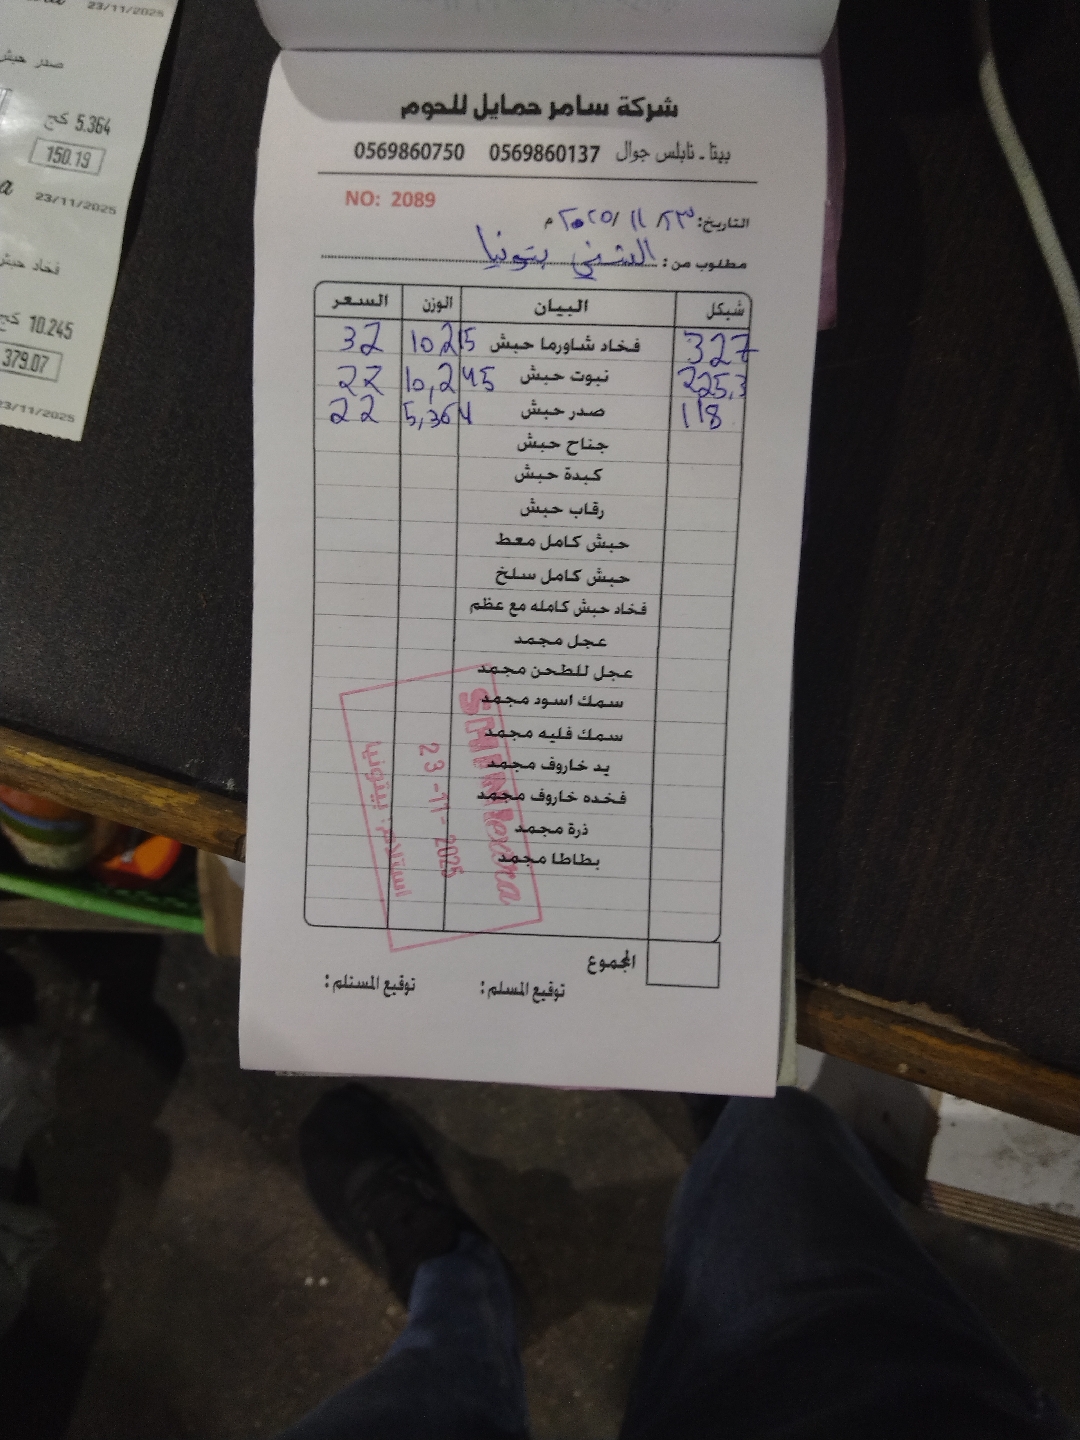 23/11/2025
صدر حبش
5.364 كج
150.19
23/11/2025
فخاد حبش
10.245 كج
379.07
23/11/2025
شركة سامر حمايل للحوم
بيتا - نابلس جوال 0569860137 0569860750
NO: 2089
التاريخ: ٢٣/ ١١ /٢٠٢٥ م
مطلوب من: الشني بتونيا
شيكل البيان الوزن السعر
327 فخاد شاورما حبش 10,215 32
225,3 نبوت حبش 10,245 22
118 صدر حبش 5,364 22
جناح حبش
كبدة حبش
رقاب حبش
حبش كامل معط
حبش كامل سلخ
فخاد حبش كامله مع عظم
عجل مجمد
عجل للطحن مجمد
سمك اسود مجمد
سمك فليه مجمد
يد خاروف مجمد
فخده خاروف مجمد
ذرة مجمد
بطاطا مجمد
23-11-2025
استلام: بيتونيا
المجموع
توقيع المسلم: توقيع المستلم: